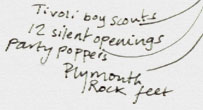 Tivoli boy scouts
12 silent openings
Party poppers
Plymouth
Rock feet